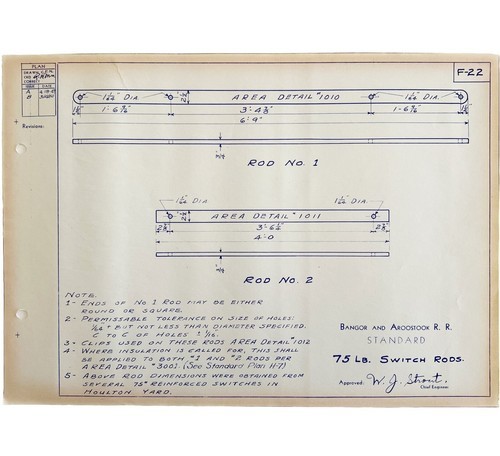 PLAN
F-22
ISSUE DATE
A
B
Revisions:
DIA
AREA DETAIL #1010
DIA
1'-6
3'-4
1'-6
6'-9"
ROD NO. 1
DIA
DIA.
AREA DETAIL #1011
3'-6 1/2
4'-0
ROD NO. 2
NOTE
1- ENDS OF NO. 1 ROD MAY BE EITHER
ROUND OR SQUARE.
2- PERMISSABLE TOLERANCE ON SIZE OF HOLES:
1/64 + BUT NOT LESS THAN DIAMETER SPECIFIED.
C TO C OF HOLES ± 1/16.
3- CLIPS USED ON THESE RODS AREA DETAIL #1012
4- WHERE INSULATION IS CALLED FOR, THIS SHALL
BE APPLIED TO BOTH #1 AND #2 RODS PER
AREA DETAIL #3001. (See Standard Plan H-7)
5- ABOVE ROD DIMENSIONS WERE OBTAINED FROM
SEVERAL 75# REINFORCED SWITCHES IN
HOULTON YARD.
BANGOR AND AROOSTOOK R. R.
STANDARD
75 LB. SWITCH RODS.
Approved: W. J. Strout,
Chief Engineer